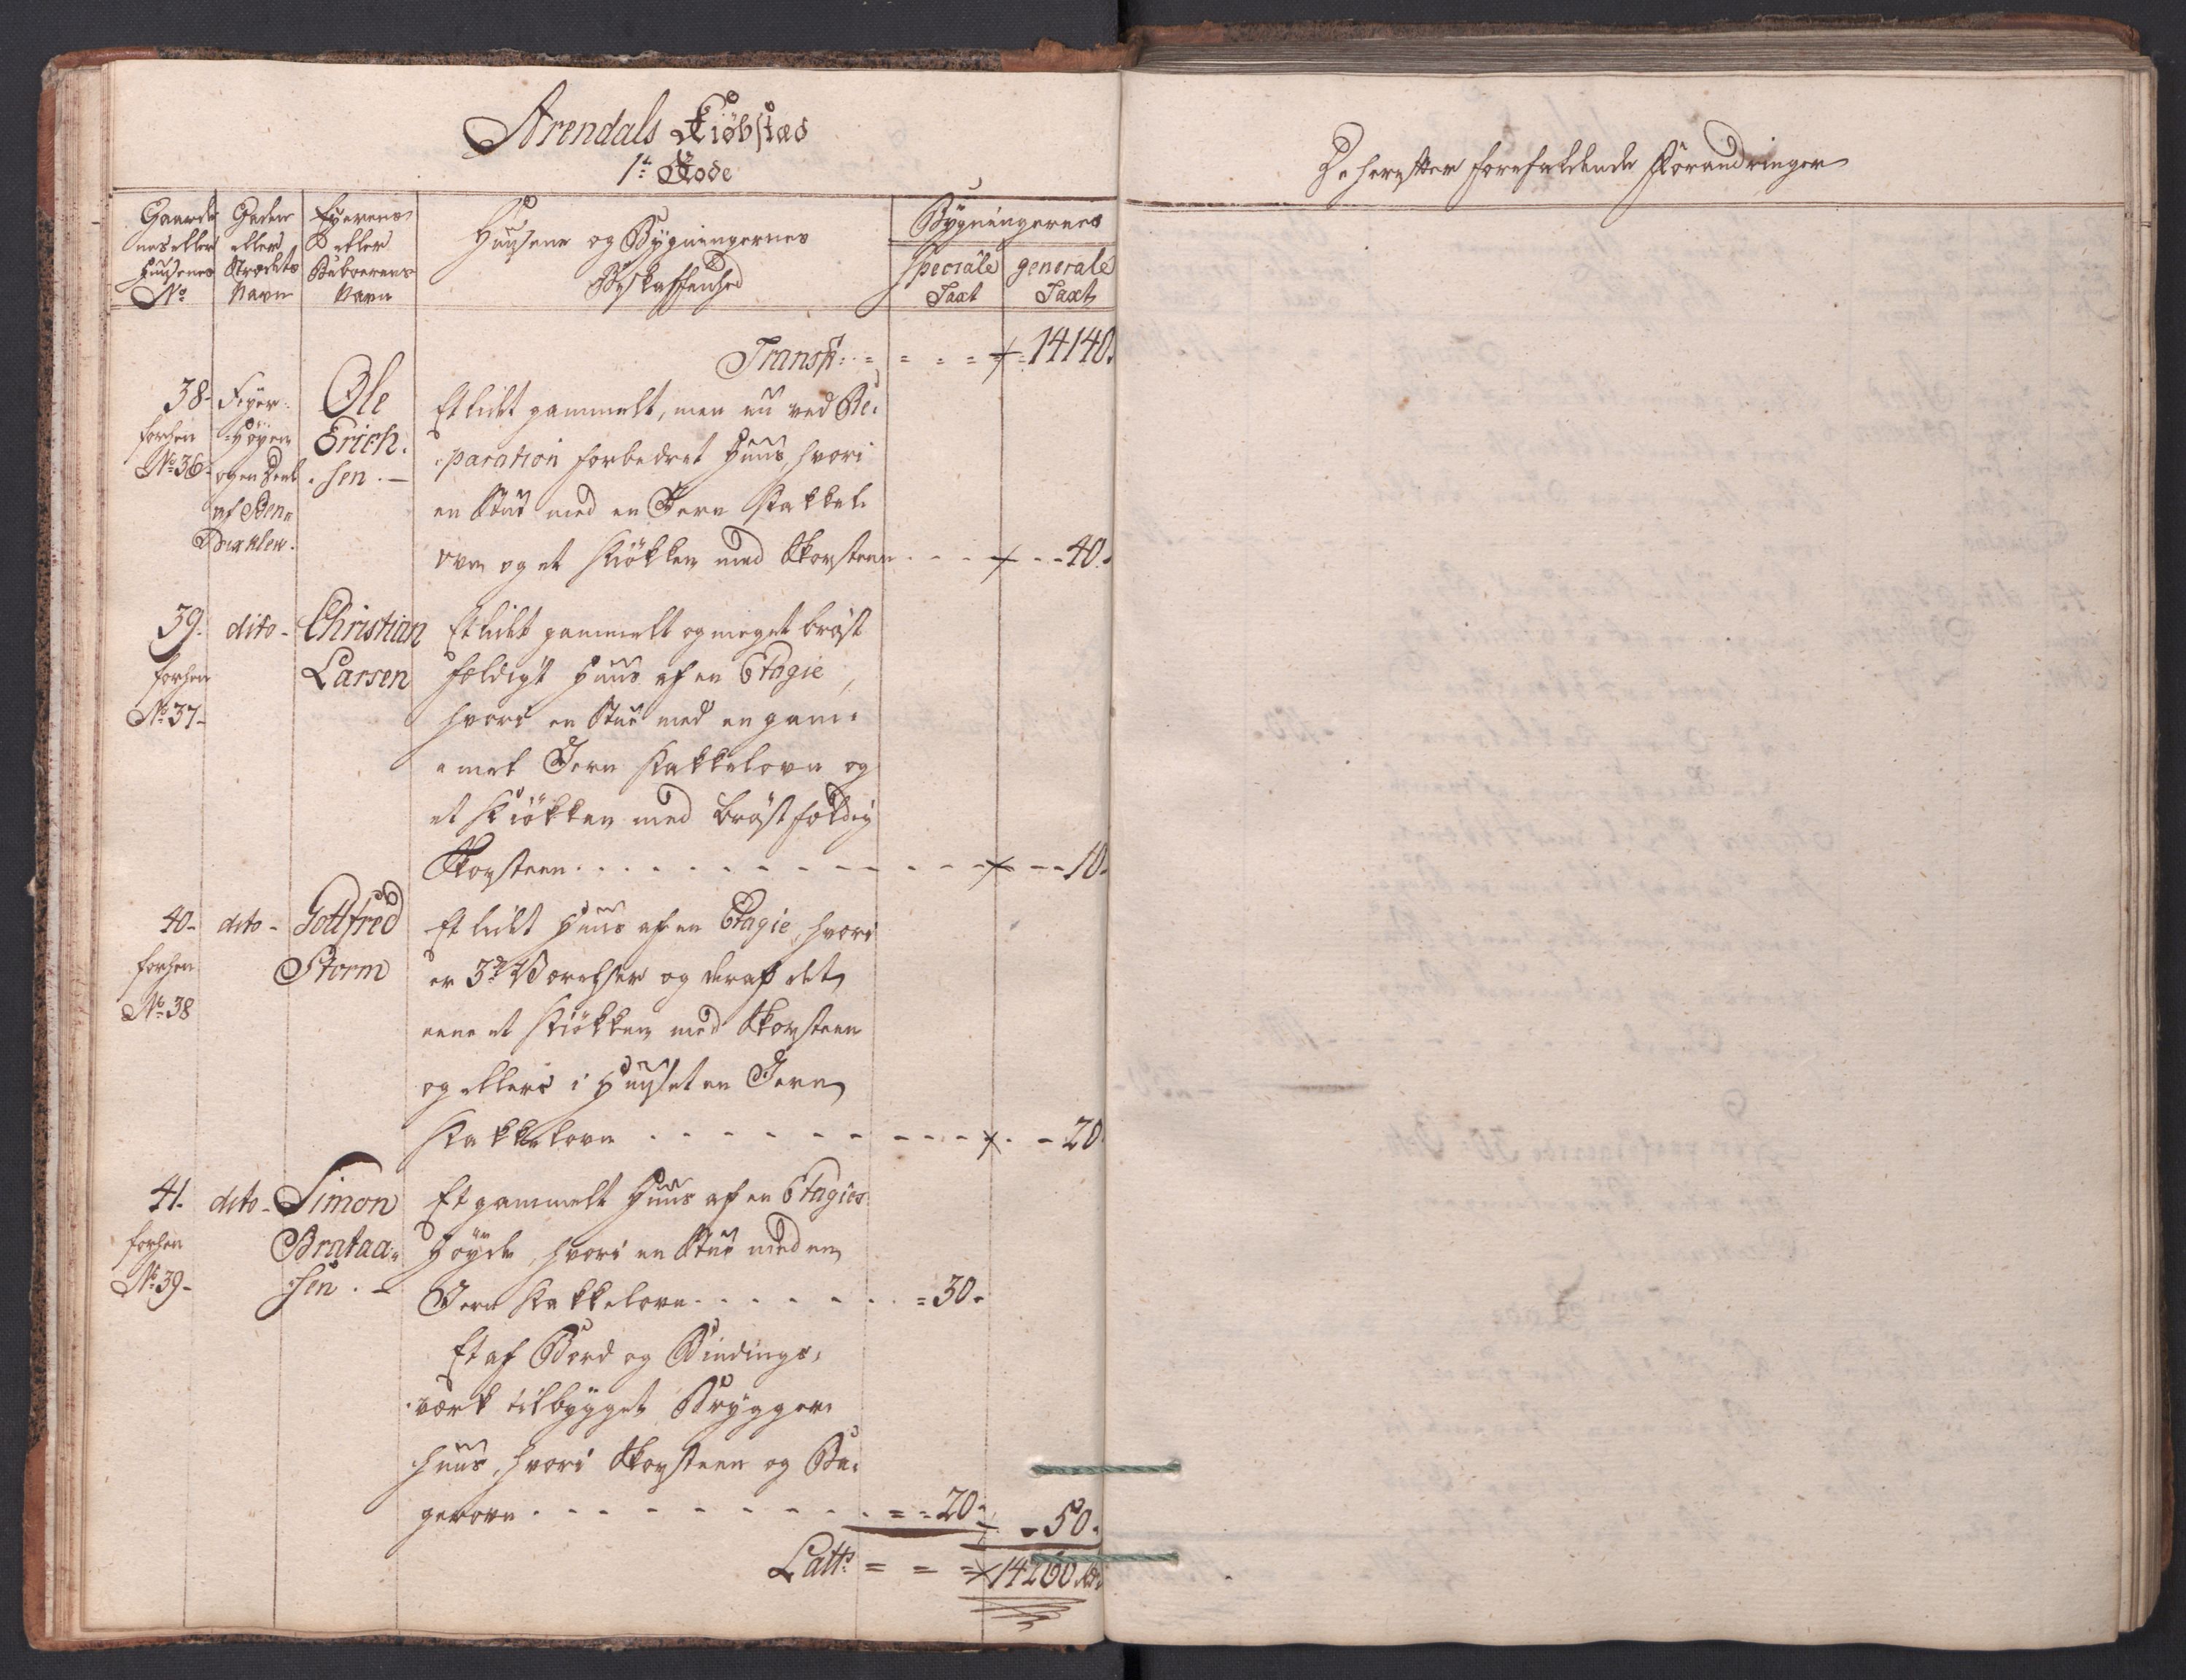 Arendals Kiöbstæd
1te Rode
Gaarde
nes eller
Huusenes
No
Gadens
eller
Strædets
Navn
Eyerens
eller
Beboerens
Navn
Huusene og Bygningernes
Beskaffenhed
Bygningernes
Speciale
Taxt
generale
Taxt
Transp: 14140.
38-
forhen
No 36-
Feyer-
Höyen
og en Deel
af
Ole
Erich-
sen. -
Et lidet gammelt, men nu ved Re-
paration forbedret Huus, hvori
en Stue med en Jern Kakkel-
ovn og et Kiökken med Skorsteen - - - 40.
39.
forhen
No 37-
dito -
Christian
Larsen
Et lidet gammelt og meget bröst
fældigt Huus af en Etagie,
hvori en Stue med en gam-
mel Jern Kakkelovn og
et Kiökken med bröstfældig
Skorsteen - - - 10.
40-
forhen
No 38
dito -
Gottfred
Storm
Et lidet Huus af en Etagie, hvori
er 3de Værelser og deraf det
eene et Kiökken med Skorsteen
og ellers i Huuset en Jern
Kakkelovn - - - 20
41.
forhen
No 39-
dito -
Simon
Brataa-
sen. -
Et gammelt Huus af en Etagies
Höyde, hvori en Stue med en
Jern Kakkelovn - - - 30.
Et af Bord og Bindings-
værk tilbygget Brygger-
huus, hvori Skorsteen og Ba-
gerovn - - - 20. - 50.
Latts = = = 14260 Rd
De herefter forefaldende Forandringer